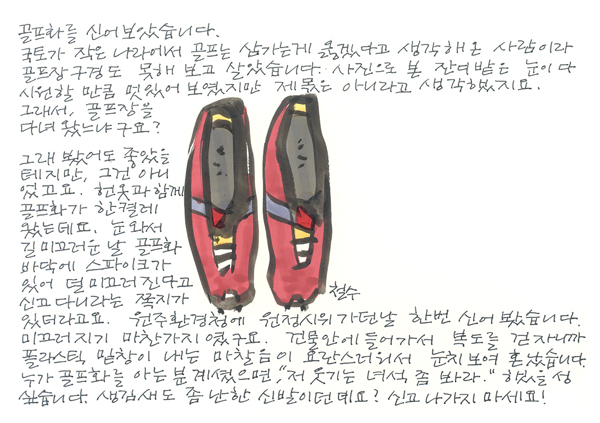 골프화를 신어 보았습니다.
국토가 작은 나라에서 골프는 삼가는게 옳겠다고 생각해 온 사람이라
골프장구경도 못해 보고 살았습니다. 사진으로 본 잔디밭은 눈이 다
시원할 만큼 멋있어 보였지만 제 몫은 아니라고 생각했지요.
그래서, 골프장을
다녀 왔느냐구요?
그래 봤어도 좋았을
테지만, 그건 아니
었고요. 헌옷과 함께
골프화가 한켤레
왔는데요. 눈와서
길 미끄러운 날 골프화
바닥에 스파이크가
있어 덜 미끄러진다고
신고 다니라는 쪽지가
있더라고요. 원주환경청에 원정시위 가던날 한번 신어 봤습니다.
미끄러지기 마찬가지였구요. 건물안에 들어가서 복도를 걷자니까
플라스틱 밑창이 내는 마찰음이 요란스러워서 눈치 보여 혼났습니다.
누가 골프화를 아는 분 계셨으면, "저 웃기는 녀석 좀 봐라." 했을 성
싶습니다. 생김새도 좀 난한 신발이던데요? 신고 나가지 마세요!
철수